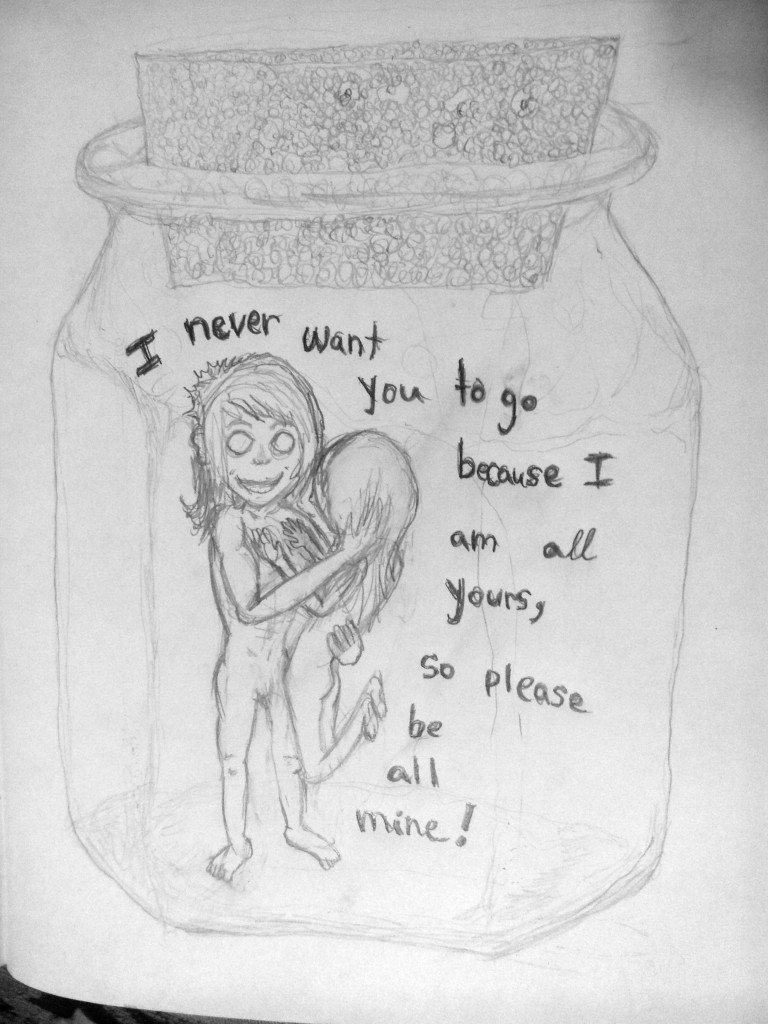 I never want
you to go
because I
am all
yours,
so please
be
all
mine!